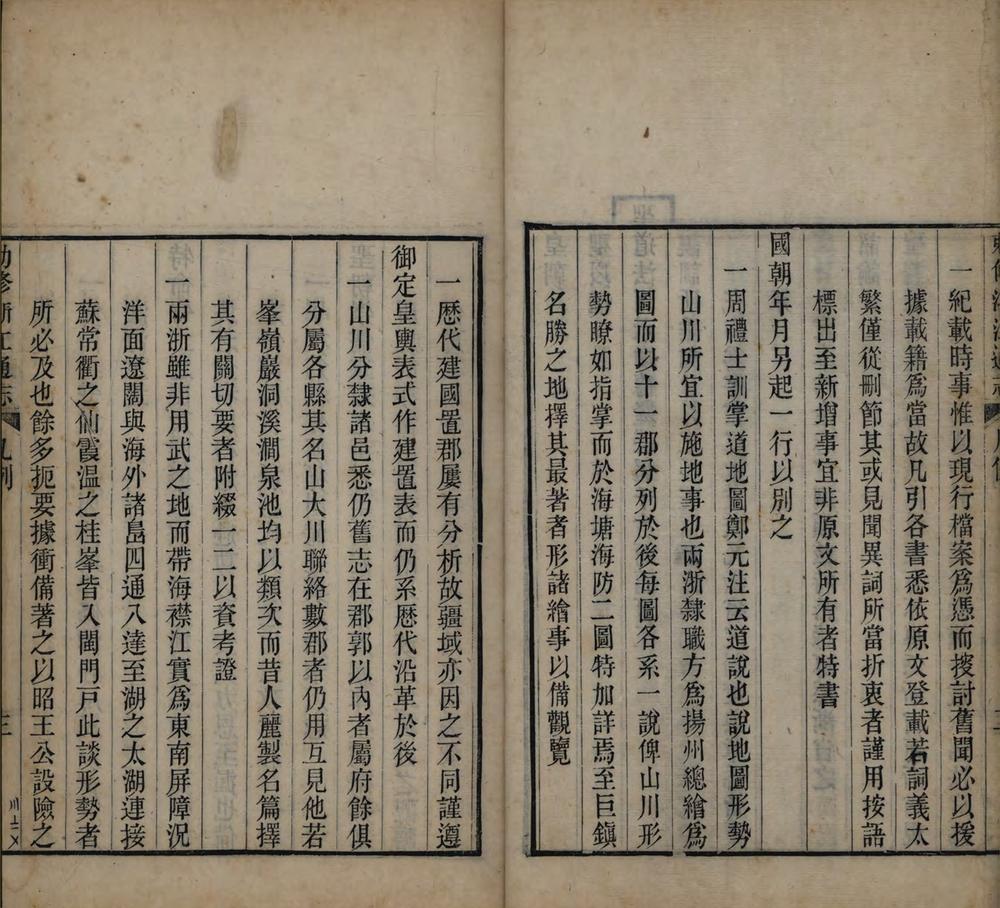 一紀載時事惟以現行檔案爲憑而披討舊聞必以援
據載籍爲當故凡引各書悉依原文登載若詞義太
繁僅從刪節其或見聞異詞所當折衷者謹用按語
標出至新增事宜非原文所有者特書
國朝年月另起一行以別之
一周禮士訓掌道地圖鄭元注云道說也說地圖形勢
山川所宜以施地事也兩浙隸職方爲揚州總繪爲
圖而以十一郡分列於後每圖各系一說俾山川形
勢瞭如指掌而於海塘海防二圖特加詳焉至巨鎭
名勝之地擇其最著者形諸繪事以備觀覽
一歷代建國置郡屢有分析故疆域亦因之不同謹遵
御定皇輿表式作建置表而仍系歷代沿革於後
一山川分隸諸邑悉仍舊志在郡郭以內者屬府餘俱
分屬各縣其名山大川聯絡數郡者仍用互見他若
峯嶺巖洞溪澗泉池均以類次而昔人麗製名篇擇
其有關切要者附綴一二以資考證
一兩浙雖非用武之地而帶海襟江實爲東南屏障況
洋面遼闊與海外諸島四通八達至湖之太湖連接
蘇常衢之仙霞溫之桂峯皆入閩門戸此談形勢者
所必及也餘多扼要據衝備著之以昭王公設險之
勅修浙江通志 凡例 三